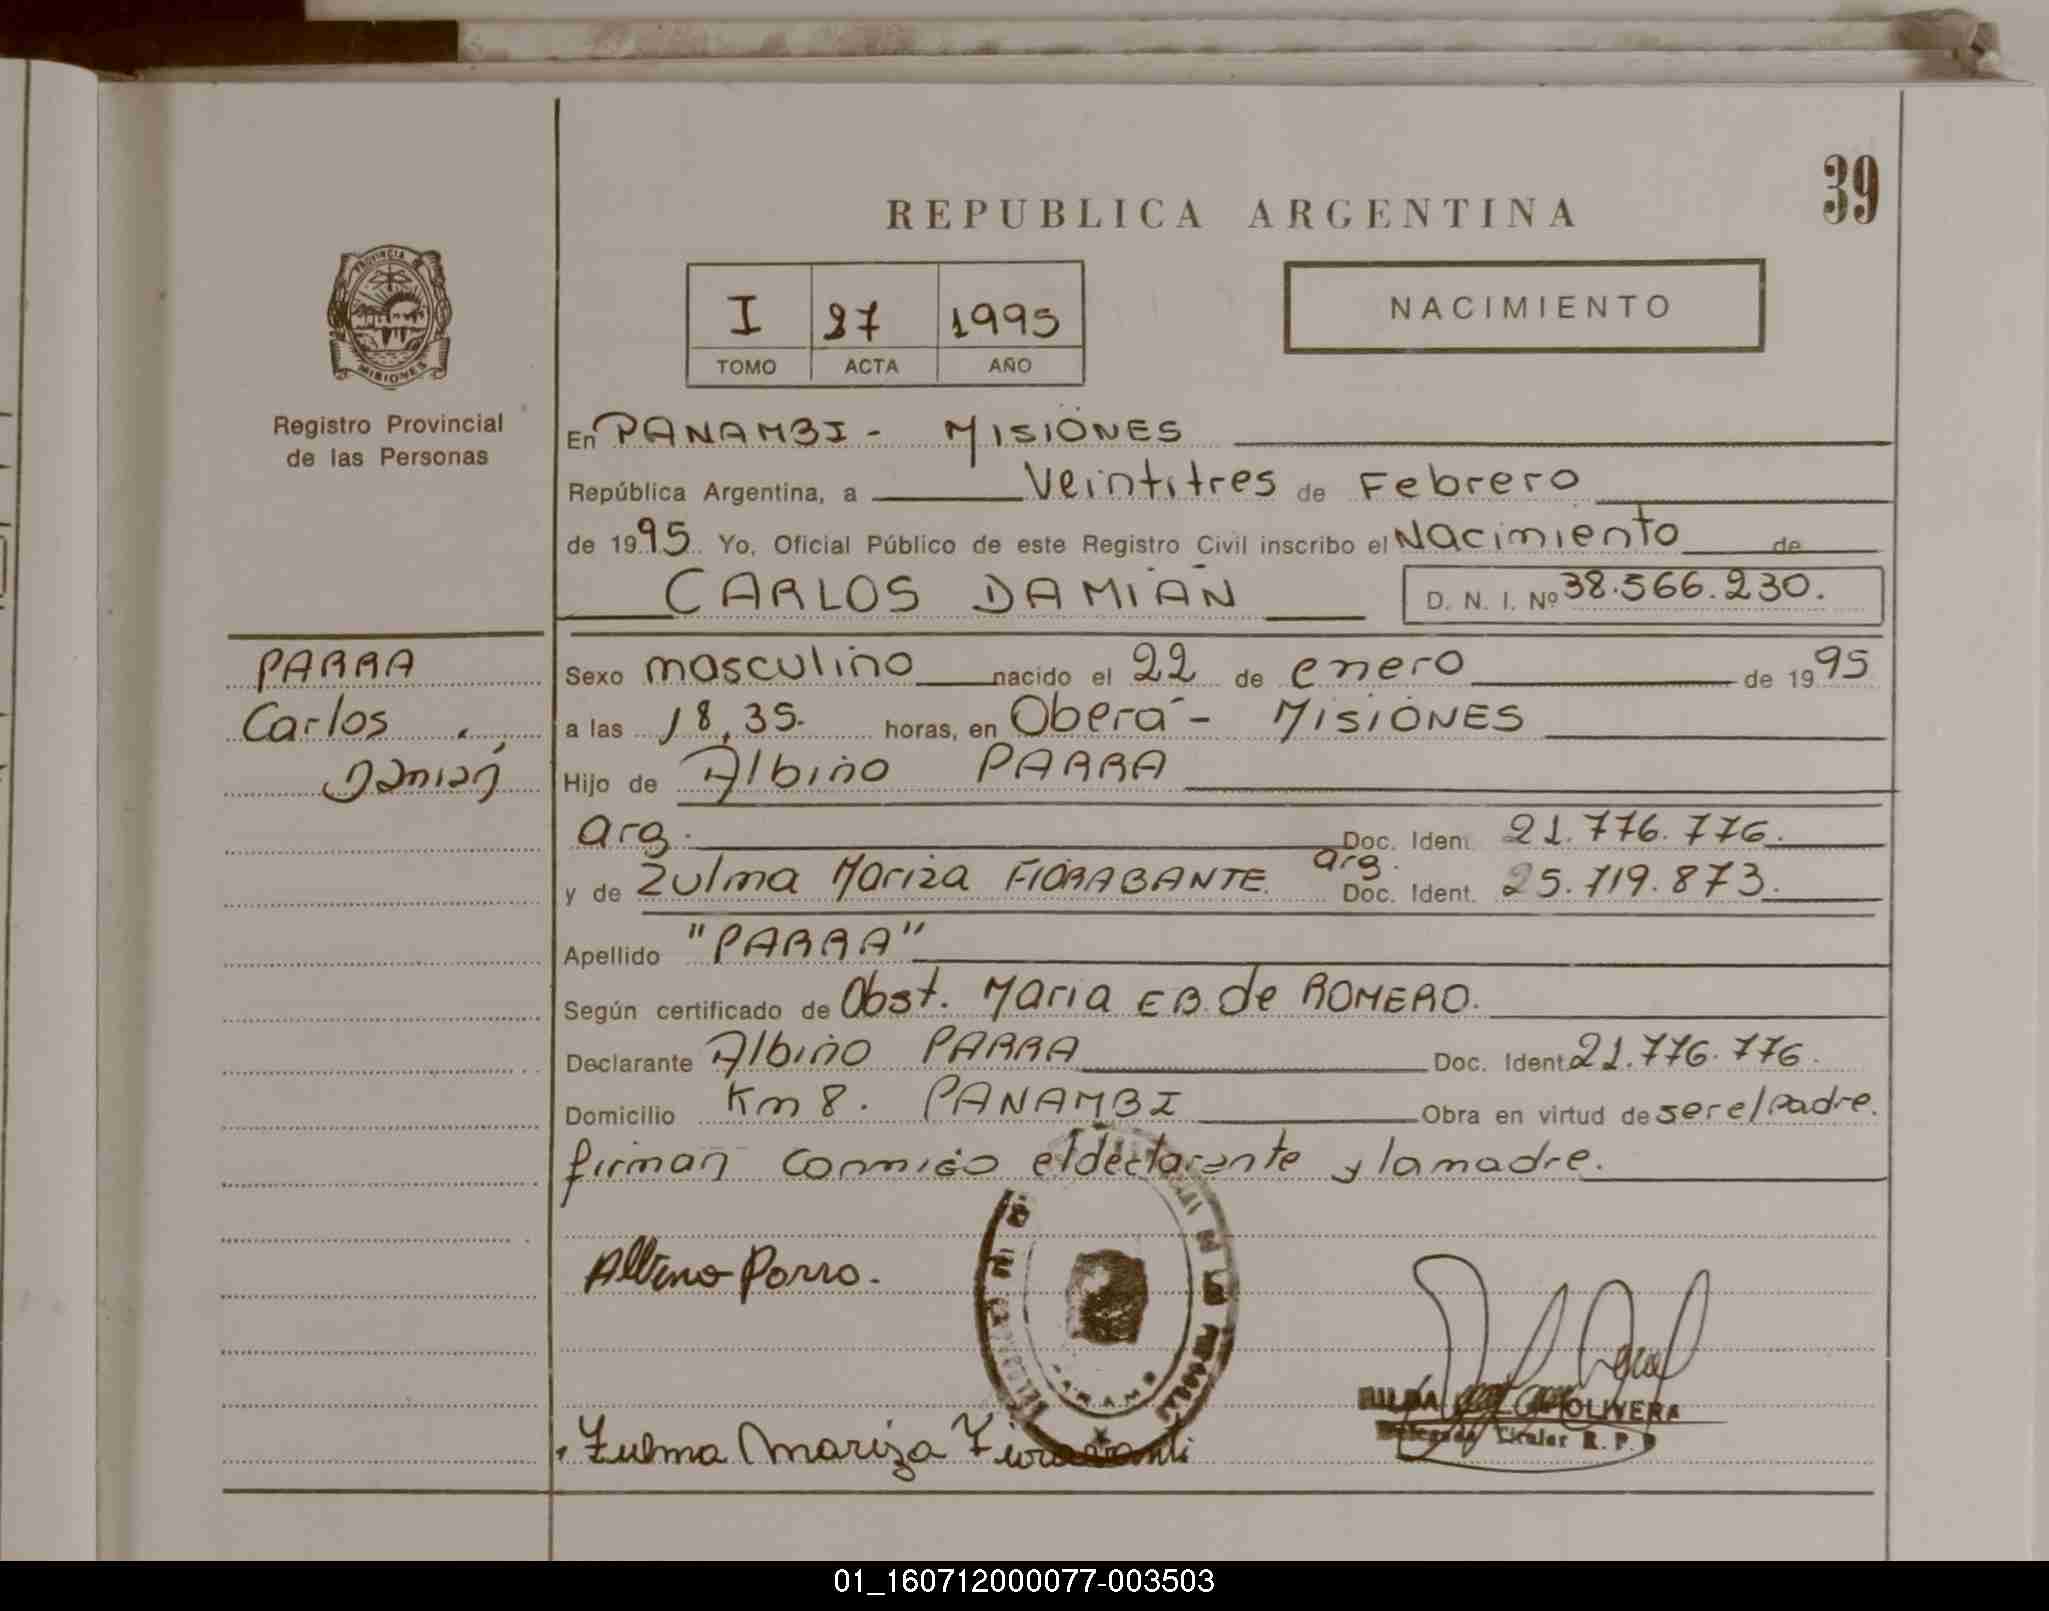 39
REPUBLICA ARGENTINA
PROVINCIA DE
MISIONES
I 37 1995
TOMO ACTA AÑO
NACIMIENTO
Registro Provincial
de las Personas
En PANAMBI - MISIONES
República Argentina, a Veintitres de Febrero
de 1995 Yo, Oficial Público de este Registro Civil inscribo el Nacimiento de
CARLOS DAMIAN D. N. I. Nº 38.566.230.
PARRA
Carlos
Damián
Sexo masculino nacido el 22 de enero de 1995
a las 18,35. horas, en Oberá - MISIONES
Hijo de Albino PARRA
arg. Doc. Ident. 21.776.776.
y de Zulma Mariza FIORABANTE arg. Doc. Ident. 25.719.873.
Apellido "PARRA"
Según certificado de Obst. Maria E B. de ROMERO.
Declarante Albino PARRA Doc. Ident. 21.776.776.
Domicilio Km 8. PANAMBI Obra en virtud de ser el Padre.
firman conmigo el declarante y la madre.
Albino Parra.
Zulma Mariza
OLIVERA
Titular R. P. P
01_160712000077-003503